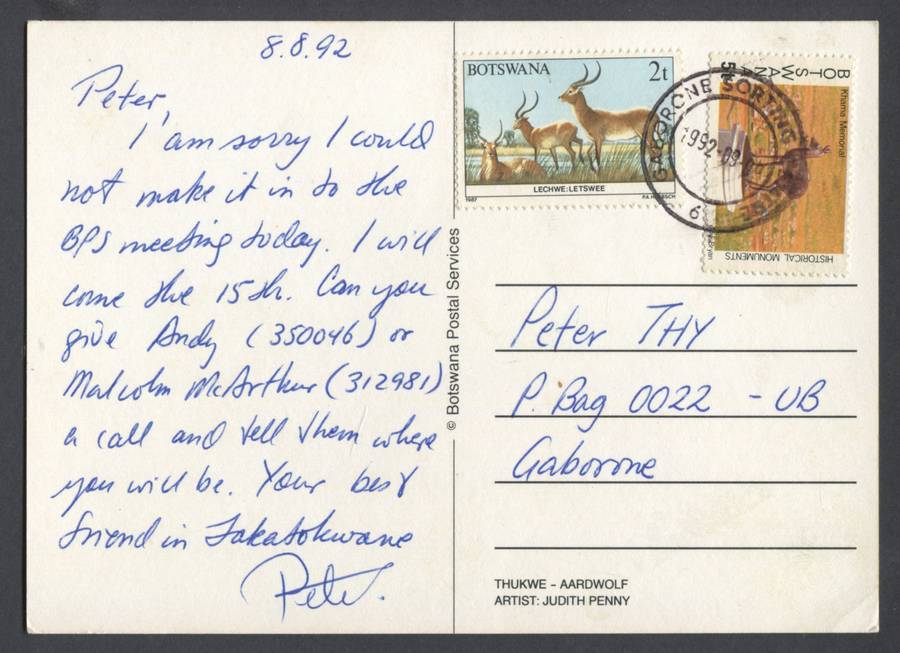 8.8.92
Peter,
I am sorry I could
not make it in to the
BPS meeting today. I will
come the 15th. Can you
give Andy (350046) or
Malcolm McArthur (312981)
a call and tell them where
you will be. Your best
friend in Takatokwane
Peter.
© Botswana Postal Services
BOTSWANA 2t
LECHWE:LETSWEE
1987
GABORONE SORTING
1992-09-0
6
BOTSWANA
5t
Khama Memorial
HISTORICAL MONUMENTS
Peter THY
P. Bag 0022 - UB
Gaborone
THUKWE - AARDWOLF
ARTIST: JUDITH PENNY